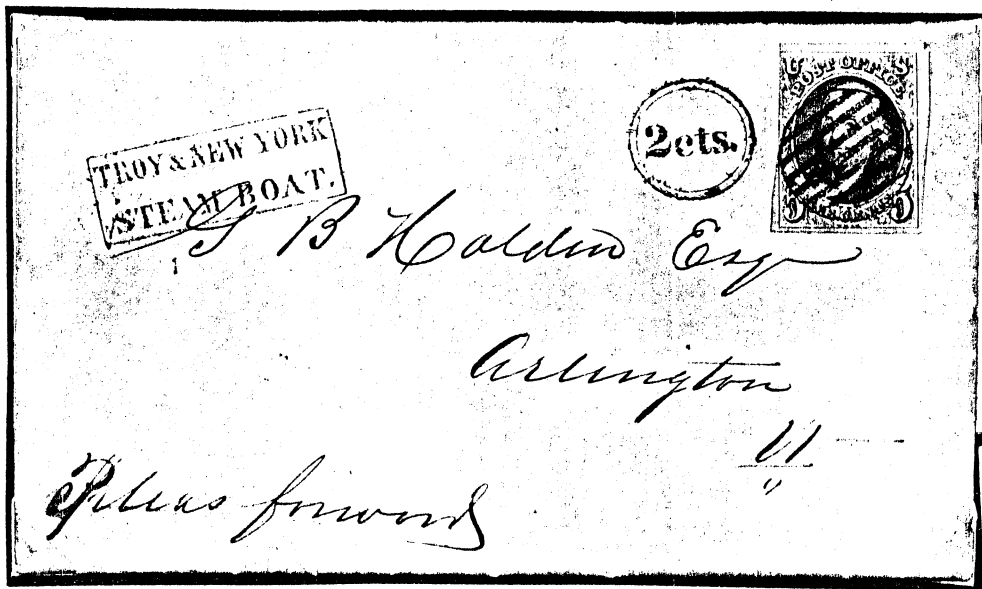 TROY & NEW YORK
STEAM BOAT.
2cts.
U S
POST OFFICE
5 5
G B Holden Esqr
Arlington
Vt
"
Pleas forward